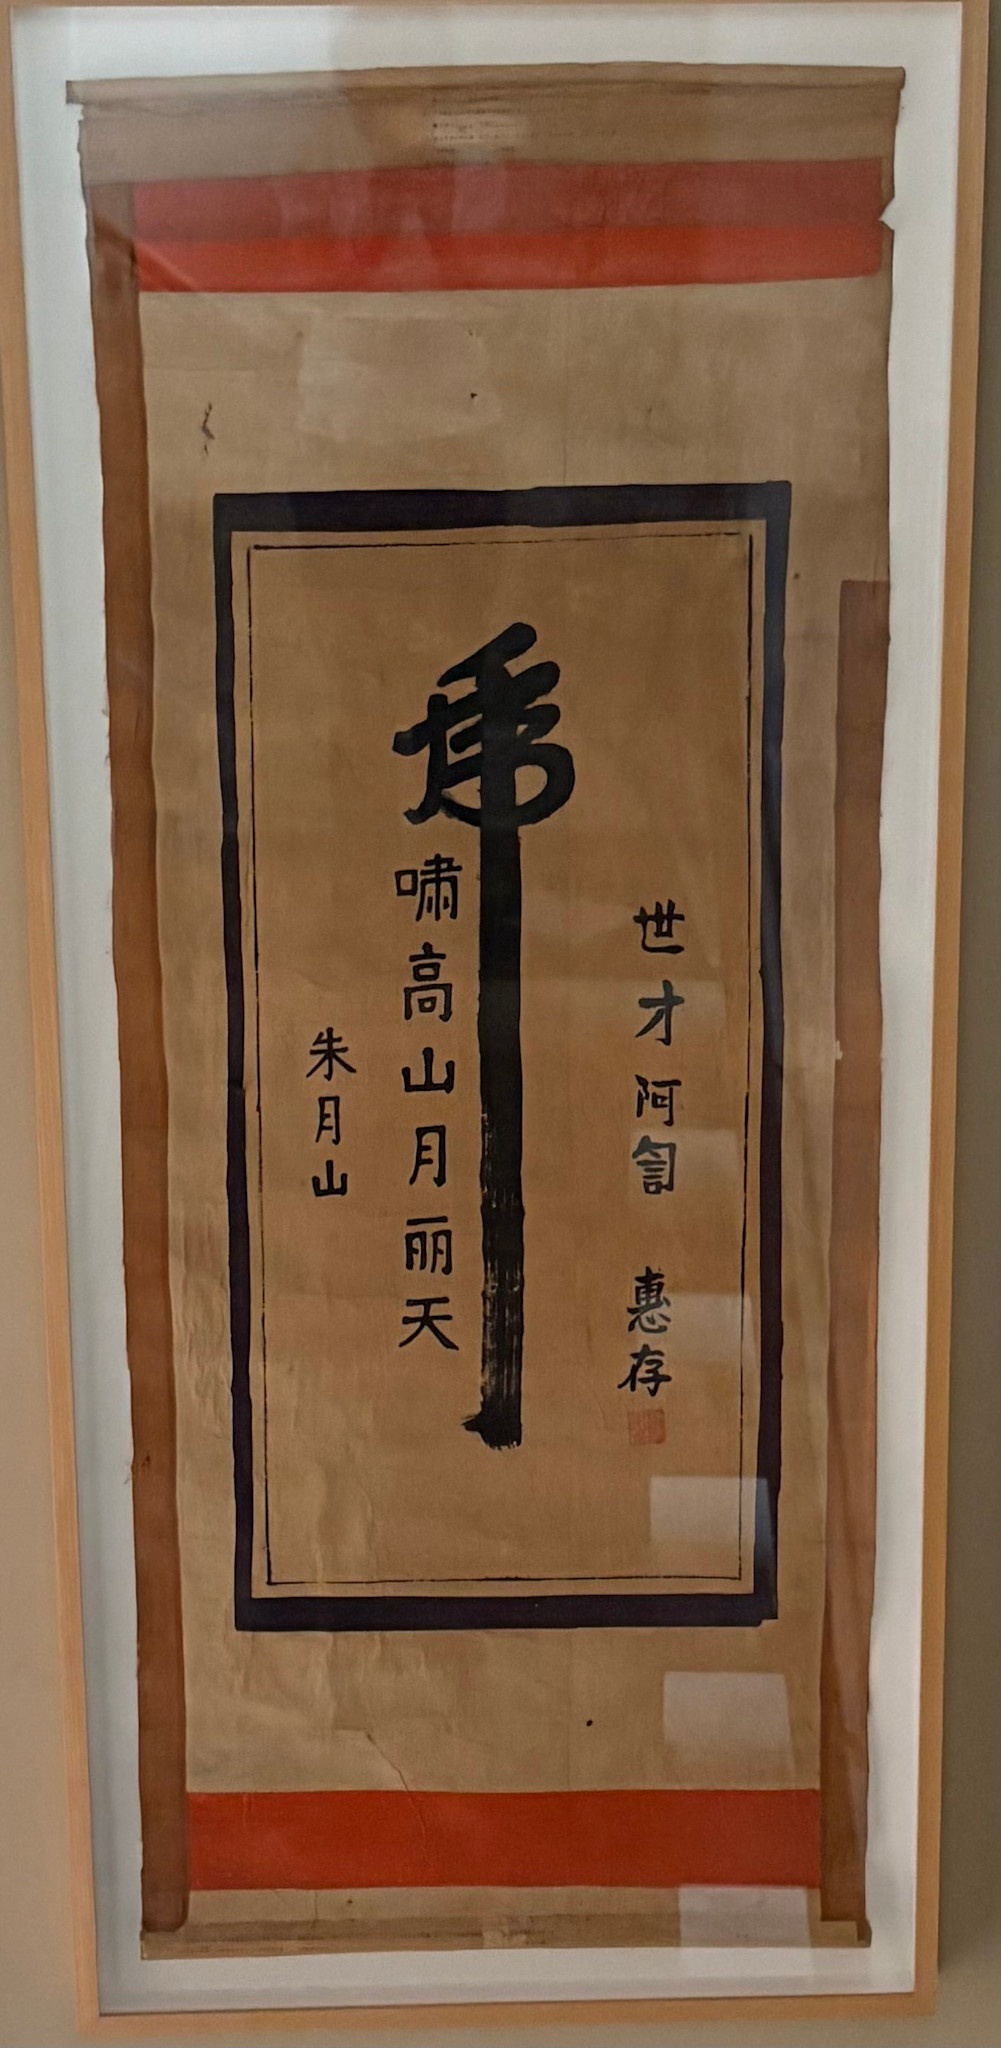 世才阿訇 惠存
虎
啸高山月丽天
朱月山